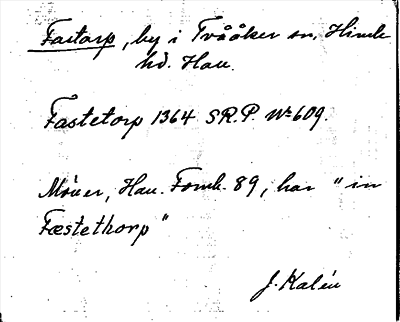 Fastarp, by i Tvååker sn, Himle
hd. Hall.
Fastetorp 1364 S.R.P. No 609.
Möller, Hall. Fornh. 89, har "in
Fæstethorp"
J. Kalén